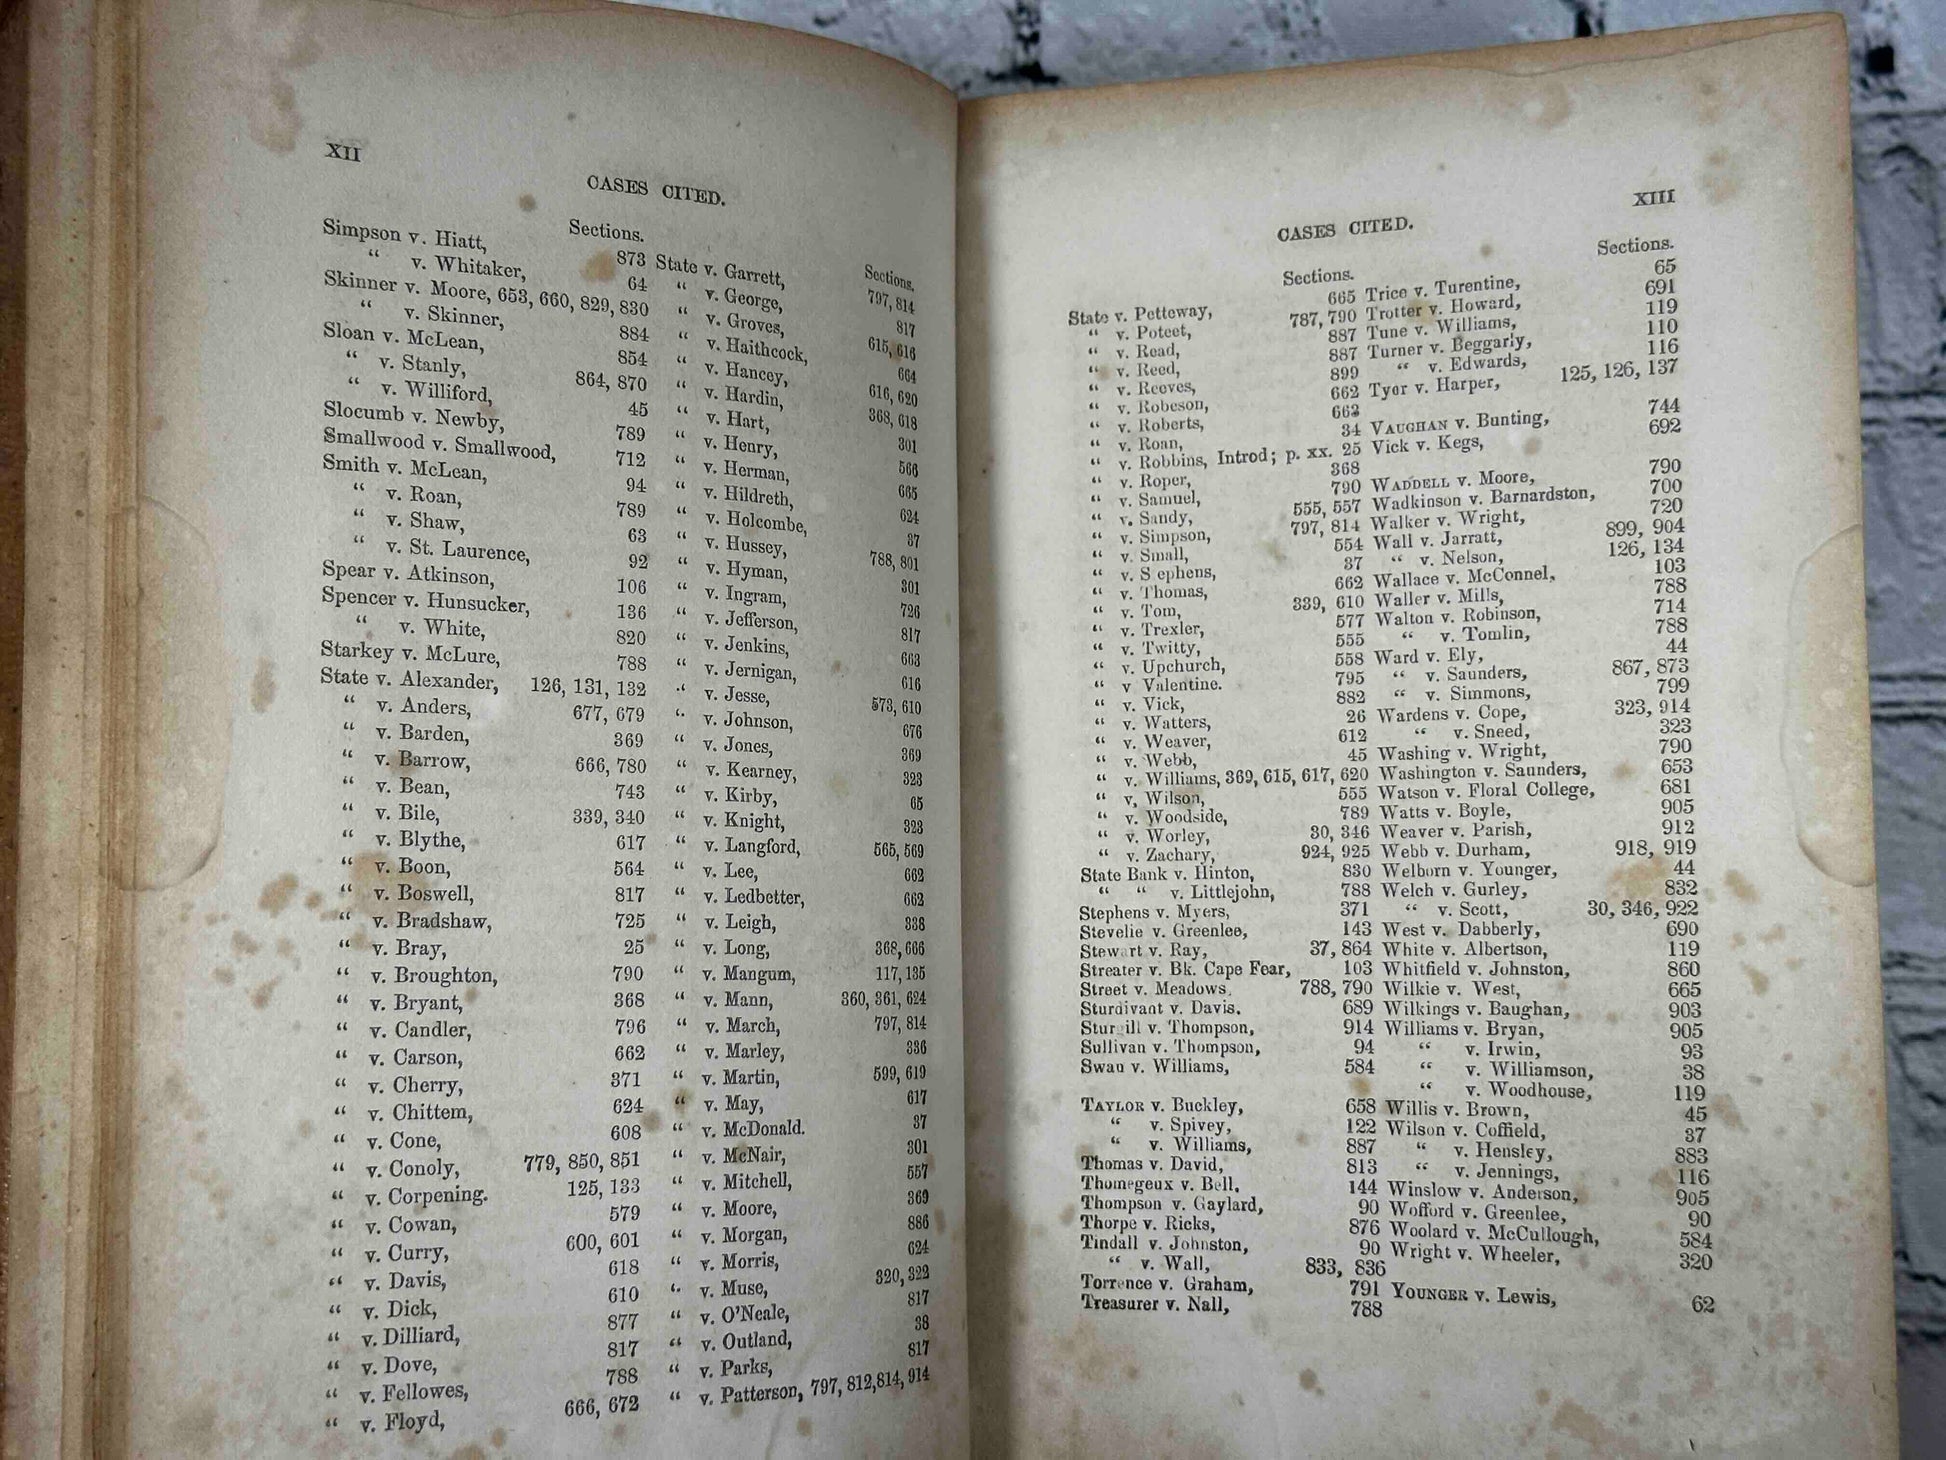 XII
CASES CITED.
Sections.
Simpson v. Hiatt, 873
“ v. Whitaker, 64
Skinner v. Moore, 653, 660, 829, 830
“ v. Skinner, 884
Sloan v. McLean, 854
“ v. Stanly, 864, 870
“ v. Williford, 45
Slocumb v. Newby, 789
Smallwood v. Smallwood, 712
Smith v. McLean, 94
“ v. Roan, 789
“ v. Shaw, 63
“ v. St. Laurence, 92
Spear v. Atkinson, 106
Spencer v. Hunsucker, 136
“ v. White, 820
Starkey v. McLure, 788
State v. Alexander, 126, 131, 132
“ v. Anders, 677, 679
“ v. Barden, 369
“ v. Barrow, 666, 780
“ v. Bean, 743
“ v. Bile, 339, 340
“ v. Blythe, 617
“ v. Boon, 564
“ v. Boswell, 817
“ v. Bradshaw, 725
“ v. Bray, 25
“ v. Broughton, 790
“ v. Bryant, 368
“ v. Candler, 796
“ v. Carson, 662
“ v. Cherry, 371
“ v. Chittem, 624
“ v. Cone, 608
“ v. Conoly, 779, 850, 851
“ v. Corpening. 125, 133
“ v. Cowan, 579
“ v. Curry, 600, 601
“ v. Davis, 618
“ v. Dick, 610
“ v. Dilliard, 877
“ v. Dove, 817
“ v. Fellowes, 788
“ v. Floyd, 666, 672
Sections.
State v. Garrett, 797, 814
“ v. George, 817
“ v. Groves, 615, 616
“ v. Haithcock, 664
“ v. Hancey, 616, 620
“ v. Hardin, 368, 618
“ v. Hart, 301
“ v. Henry, 566
“ v. Herman, 665
“ v. Hildreth, 624
“ v. Holcombe, 37
“ v. Hussey, 788, 801
“ v. Hyman, 301
“ v. Ingram, 726
“ v. Jefferson, 817
“ v. Jenkins, 663
“ v. Jernigan, 616
“ v. Jesse, 573, 610
“ v. Johnson, 676
“ v. Jones, 369
“ v. Kearney, 323
“ v. Kirby, 65
“ v. Knight, 323
“ v. Langford, 565, 569
“ v. Lee, 662
“ v. Ledbetter, 662
“ v. Leigh, 338
“ v. Long, 368, 666
“ v. Mangum, 117, 135
“ v. Mann, 360, 361, 624
“ v. March, 797, 814
“ v. Marley, 336
“ v. Martin, 599, 619
“ v. May, 617
“ v. McDonald. 37
“ v. McNair, 301
“ v. Mitchell, 557
“ v. Moore, 369
“ v. Morgan, 886
“ v. Morris, 624
“ v. Muse, 320, 322
“ v. O'Neale, 817
“ v. Outland, 38
“ v. Parks, 817
“ v. Patterson, 797, 812, 814, 914
XIII
CASES CITED.
Sections.
State v. Petteway, 665
“ v. Poteet, 787, 790
“ v. Read, 887
“ v. Reed, 887
“ v. Reeves, 899
“ v. Robeson, 662
“ v. Roberts, 663
“ v. Roan, 34
“ v. Robbins, Introd; p. xx. 25
“ v. Roper, 368
“ v. Samuel, 790
“ v. Sandy, 555, 557
“ v. Simpson, 797, 814
“ v. Small, 554
“ v. S ephens, 37
“ v. Thomas, 662
“ v. Tom, 339, 610
“ v. Trexler, 577
“ v. Twitty, 555
“ v. Upchurch, 558
“ v Valentine. 795
“ v. Vick, 882
“ v. Watters, 26
“ v. Weaver, 612
“ v. Webb, 45
“ v. Williams, 369, 615, 617, 620
“ v. Wilson, 555
“ v. Woodside, 789
“ v. Worley, 30, 346
“ v. Zachary, 924, 925
State Bank v. Hinton, 830
“ “ v. Littlejohn, 788
Stephens v. Myers, 371
Stevelie v. Greenlee, 143
Stewart v. Ray, 37, 864
Streater v. Bk. Cape Fear, 103
Street v. Meadows, 788, 790
Sturdivant v. Davis. 689
Sturgill v. Thompson, 914
Sullivan v. Thompson, 94
Swan v. Williams, 584
TAYLOR v. Buckley, 658
“ v. Spivey, 122
“ v. Williams, 887
Thomas v. David, 813
Thomegeux v. Bell, 144
Thompson v. Gaylard, 90
Thorpe v. Ricks, 876
Tindall v. Johnston, 90
“ v. Wall, 833, 836
Torrence v. Graham, 791
Treasurer v. Nall, 788
Sections.
Trice v. Turentine, 65
Trotter v. Howard, 691
Tune v. Williams, 119
Turner v. Beggarly, 110
“ v. Edwards, 116
Tyor v. Harper, 125, 126, 137
VAUGHAN v. Bunting, 744
Vick v. Kegs, 692
WADDELL v. Moore, 790
Wadkinson v. Barnardston, 700
Walker v. Wright, 720
Wall v. Jarratt, 899, 904
“ v. Nelson, 126, 134
Wallace v. McConnel, 103
Waller v. Mills, 788
Walton v. Robinson, 714
“ v. Tomlin, 788
Ward v. Ely, 44
“ v. Saunders, 867, 873
“ v. Simmons, 799
Wardens v. Cope, 323, 914
“ v. Sneed, 323
Washing v. Wright, 790
Washington v. Saunders, 653
Watson v. Floral College, 681
Watts v. Boyle, 905
Weaver v. Parish, 912
Webb v. Durham, 918, 919
Welborn v. Younger, 44
Welch v. Gurley, 832
“ v. Scott, 30, 346, 922
West v. Dabberly, 690
White v. Albertson, 119
Whitfield v. Johnston, 860
Wilkie v. West, 665
Wilkings v. Baughan, 903
Williams v. Bryan, 905
“ v. Irwin, 93
“ v. Williamson, 38
“ v. Woodhouse, 119
Willis v. Brown, 45
Wilson v. Coffield, 37
“ v. Hensley, 883
“ v. Jennings, 116
Winslow v. Anderson, 905
Wofford v. Greenlee, 90
Woolard v. McCullough, 584
Wright v. Wheeler, 320
YOUNGER v. Lewis, 62